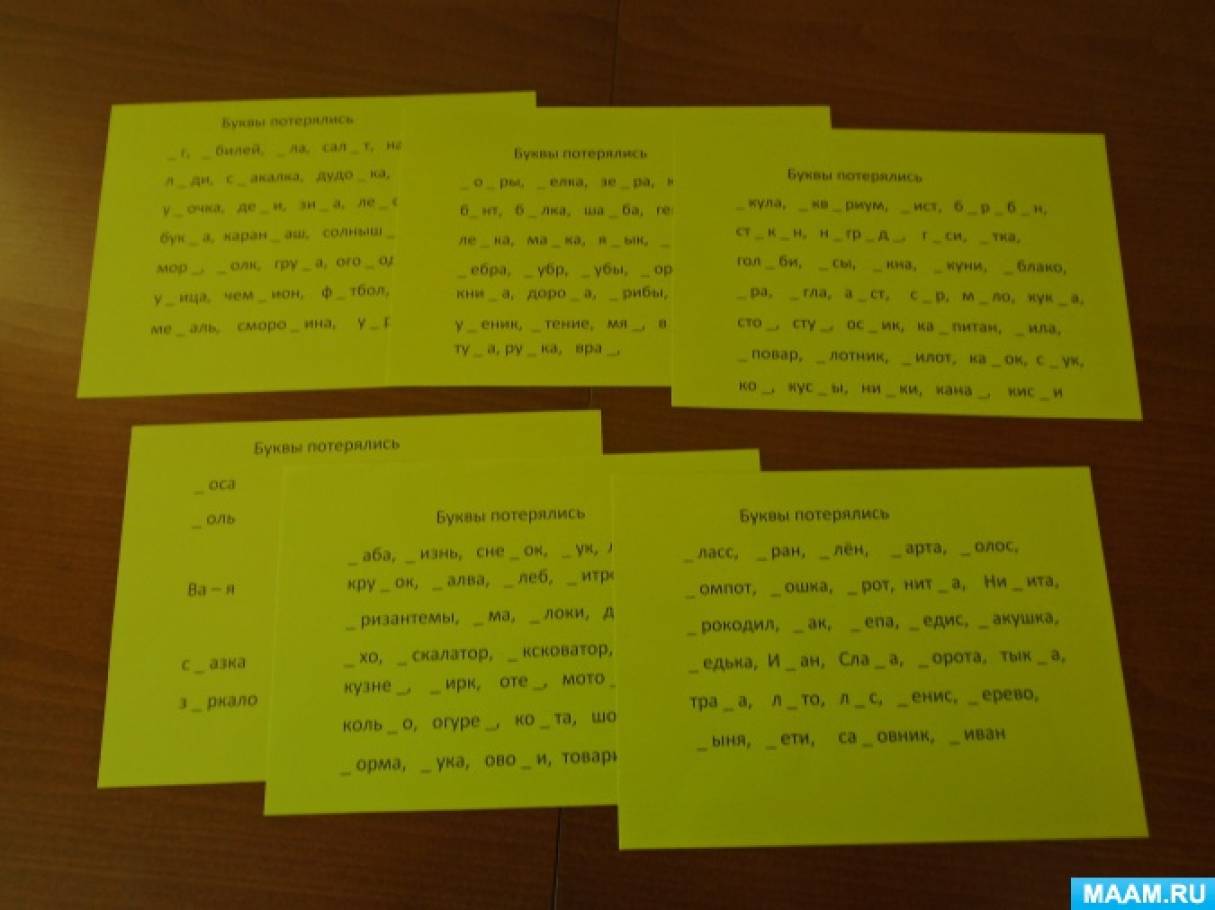 Буквы потерялись
_ г, _ билей, _ ла, сал _ т, на
л _ ди, с _ акалка, дудо _ ка,
у _ очка, де _ и, зи _ а, ле _
бук _ а, каран _ аш, солныш _
мор _, _ олк, гру _ а, ого _ од
у _ ица, чем _ ион, ф _ тбол,
ме _ аль, сморо _ ина, у _
Буквы потерялись
_ о _ ры, _ елка, зе _ ра,
б _ нт, б _ лка, ша _ ба, ге
ле _ ка, ма _ ка, я _ ык, _
_ ебра, _ убр, _ убы, _ ор
кни _ а, доро _ а, _ рибы,
у _ еник, _ тение, мя _, в
ту _ а, ру _ ка, вра _,
Буквы потерялись
_ кула, _ кв _ риум, _ ист, б _ р _ б _ н,
ст _ к _ н, н _ гр _ д _, г _ си, _ тка,
гол _ би, _ сы, _ кна, _ куни, _ блако,
_ ра, _ гла, а _ ст, с _ р, м _ ло, кук _ а,
сто _, сту _, ос _ ик, ка _ питан, _ ила,
_ повар, _ лотник, _ илот, ка _ ок, с _ ук,
ко _, кус _ ы, ни _ ки, кана _, кис _ и
Буквы потерялись
_ оса
_ оль
Ва – я
с _ азка
з _ ркало
Буквы потерялись
_ аба, _ изнь, сне _ ок, _ ук,
кру _ ок, _ алва, _ леб, _ итр
_ ризантемы, _ ма, _ локи, д
_ хо, _ скалатор, _ ксковатор,
кузне _, _ ирк, оте _, мото _
коль _ о, огуре _, ко _ та, шо
_ орма, _ ука, ово _ и, товар
Буквы потерялись
_ ласс, _ ран, _ лён, _ арта, _ олос,
_ омпот, _ ошка, _ рот, нит _ а, Ни _ ита,
_ рокодил, _ ак, _ епа, _ едис, _ акушка,
_ едька, И _ ан, Сла _ а, _ орота, тык _ а,
тра _ а, л _ то, л _ с, _ енис, _ ерево,
_ ыня, _ ети, са _ овник, _ иван
MAAM.RU